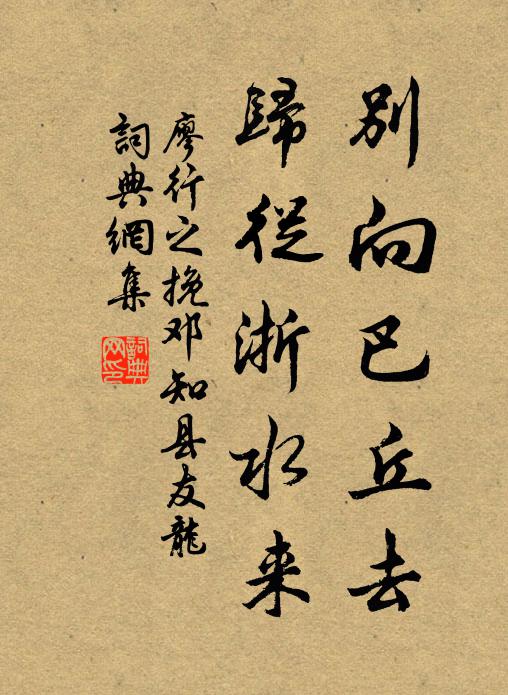 別向巴丘去
歸從浙水来
廖行之挽邓知县友龍
詞典網集
詞典网印